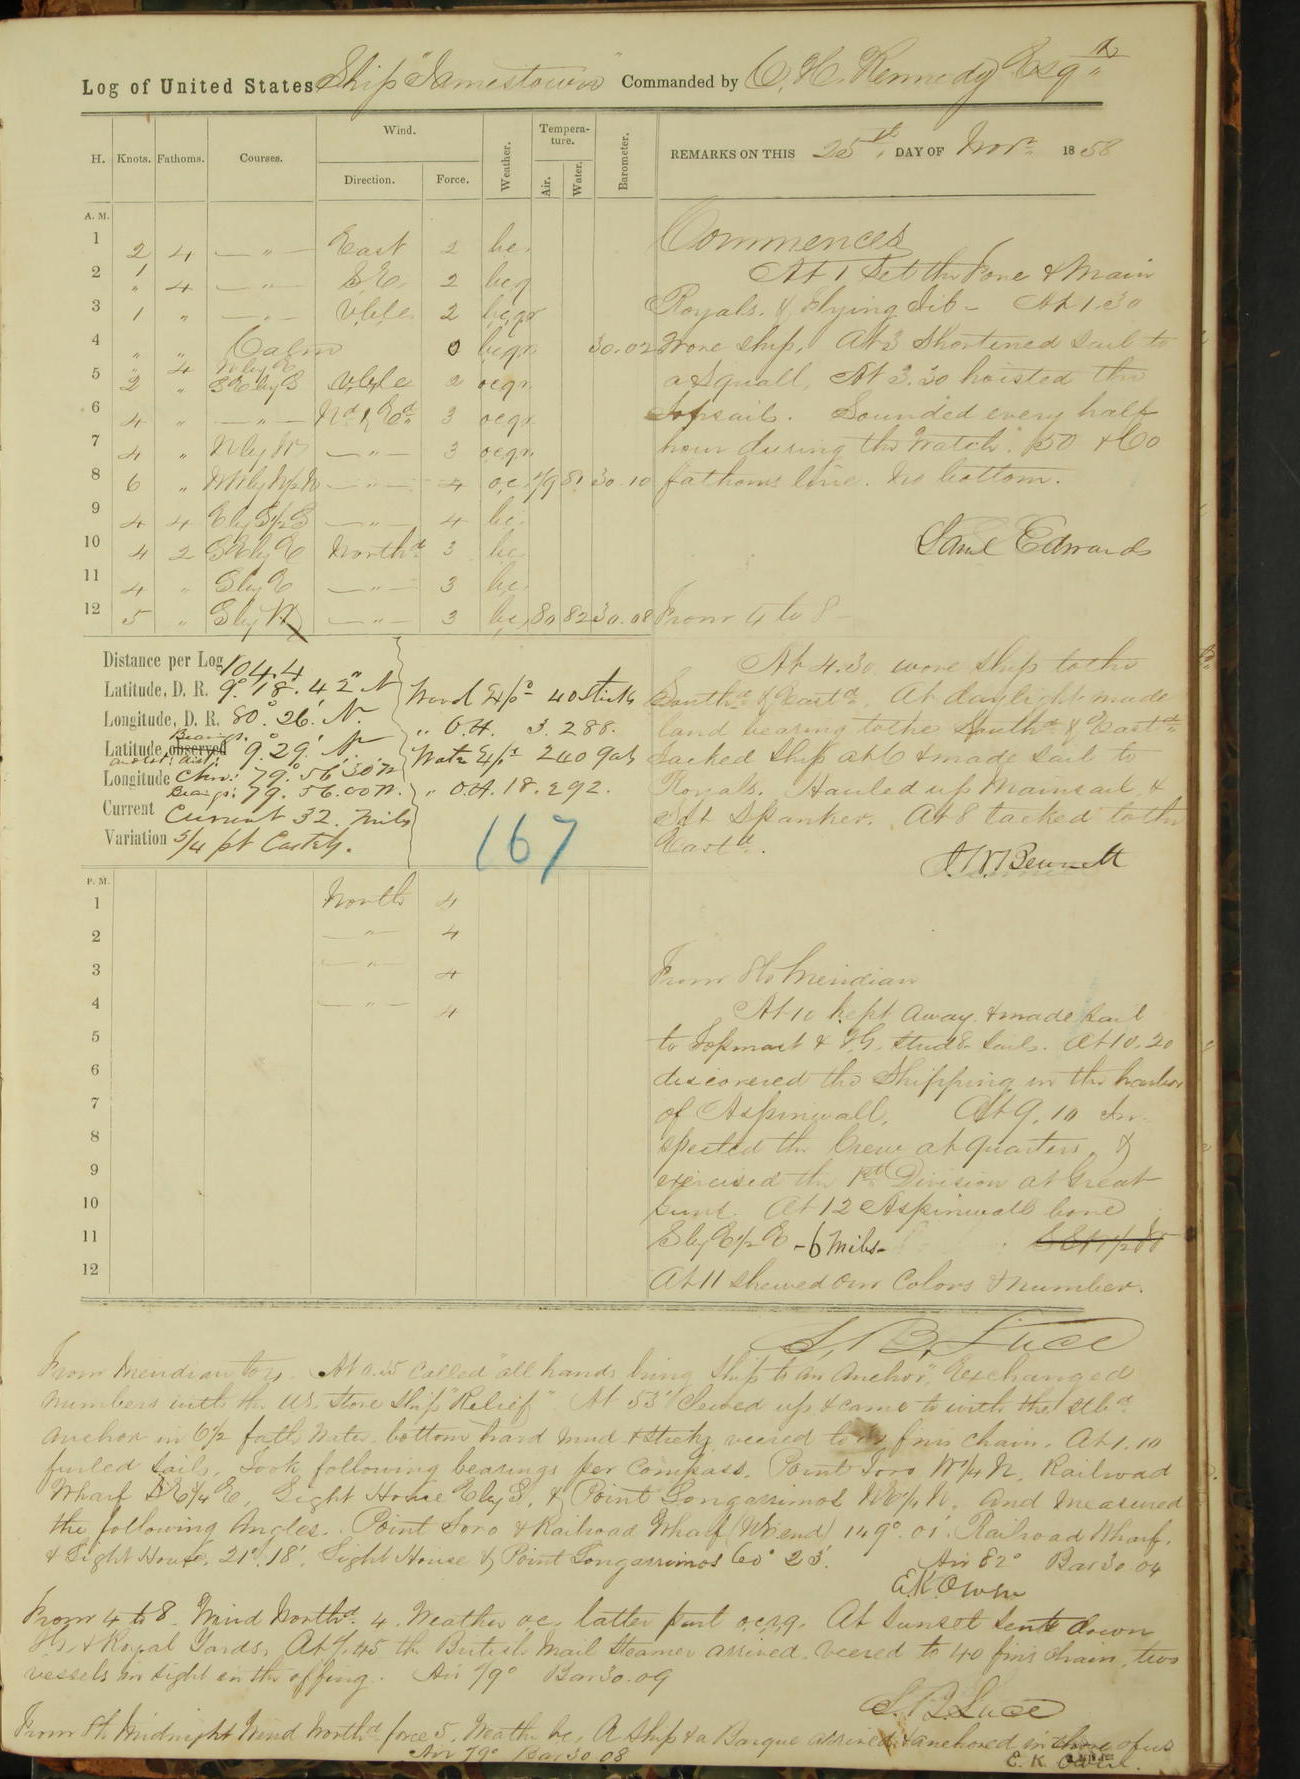 Log of United States Ship "Jamestown" Commanded by C. H. Kennedy Esqr
H. Knots. Fathoms. Courses. Wind. Direction. Force. Weather. Temperature. Air. Water. Barometer.
REMARKS ON THIS 25th DAY OF Novr 1858
A. M.
1 2 4 — " — East 2 bc.
2 1 4 — " — S E. 2 bcq
3 1 " — " — Vble 2 bcqr
4 " " Calm 0 bcqr 30.02
5 2 " SE by S Vble 2 ocqr
6 4 " — " — Nd & Ed 3 ocqr
7 4 " N by W — " — 3 ocqr
8 6 " — " — 4 oc. 79 81 30.10
9 4 4 E by S 1/2 S — " — 4 bc.
10 4 2 SE by E Northd 3 bc
11 4 " S by E — " — 3 bc
12 5 " S by W — " — 3 bc, 80 82 30.08
Commences
At 1 Set the Fore & Main
Royals. & Flying Jib - At 1.30
Wore ship. At 3 Shortened sail to
a Squall, At 3.30 hoisted the
Topsails. Sounded every half
hour during the Watch. 50 & 60
fathoms line. No bottom.
Saml Edwards
From 4 to 8 -
At 4.30 wore ship to the
Southd & Eastd. At daylight made
land bearing to the Southd & Eastd.
Tacked Ship at 6 & made sail to
Royals. Hauled up Mainsail, &
Set Spanker. At 8 tacked to the
Eastd.
J. W. Bennett
Distance per Log 104.4
Latitude, D. R. 9° 18'. 42" N
Longitude, D. R. 80°. 26'. N.
Bearings.
Latitude observed 9°. 29'. N.
Longitude Chro: 79°. 56' 30" N
Bearings: 79. 56. 00 N.
Current Current 32. Miles
Variation 5/4 pt Easterly.
Wood Expd 40 sticks
" O.H. 3.288.
Water Expd 240 gals
" O.H. 18.292.
167
P. M.
1 North 4
2 — " — 4
3 — " — 4
4 — " — 4
5
6
7
8
9
10
11
12
From 8 to Meridian
At 10 kept away & made sail
to Topmast & T.G. studg Sails. At 10.20
discovered the Shipping in the harbor
of Aspinwall. At 9.10 In-
spected the Crew at quarters, &
exercised the 1st Division at Great
guns. At 12 Aspinwall bore
S by E 1/2 E - 6 Miles -
At 11 shewed our Colors & number.
S. B. Luce
From Meridian to 4. At 0.35 called "all hands bring ship to an Anchor", Exchanged
numbers with the U.S. Store Ship "Relief" At 53' Clewed up & came to with the stbd
anchor in 6 1/2 faths water bottom hard mud & sticky veered to fms chain. At 1.10
furled sails. Took following bearings per Compass. Point Toro W 1/4 N. Railroad
Wharf SE 1/4 E, Light House E by S, & Point And Measured
the following Angles. Point Toro & Railroad Wharf (W end) 149°. 01'. Railroad Wharf.
& Light House. 21° 18'. Light House & Point 60° 23'. Air 82° Bar 30.04
E. K. Owen
From 4 to 8 Wind Northd. 4. Weather oc, latter part ocrq. At sunset sent down
& Royal Yards. At 7.45 the British Mail Steamer arrived. veered to 40 fms chain, two
vessels in sight in the offing. Air 79° Bar 30.09
S. B. Luce
From 8 to Midnight Wind Northd force 5, Weather bc, A Ship & a Barque arrived & anchored in shore of us
Air 79° Bar 30.08
E. K. Owen.